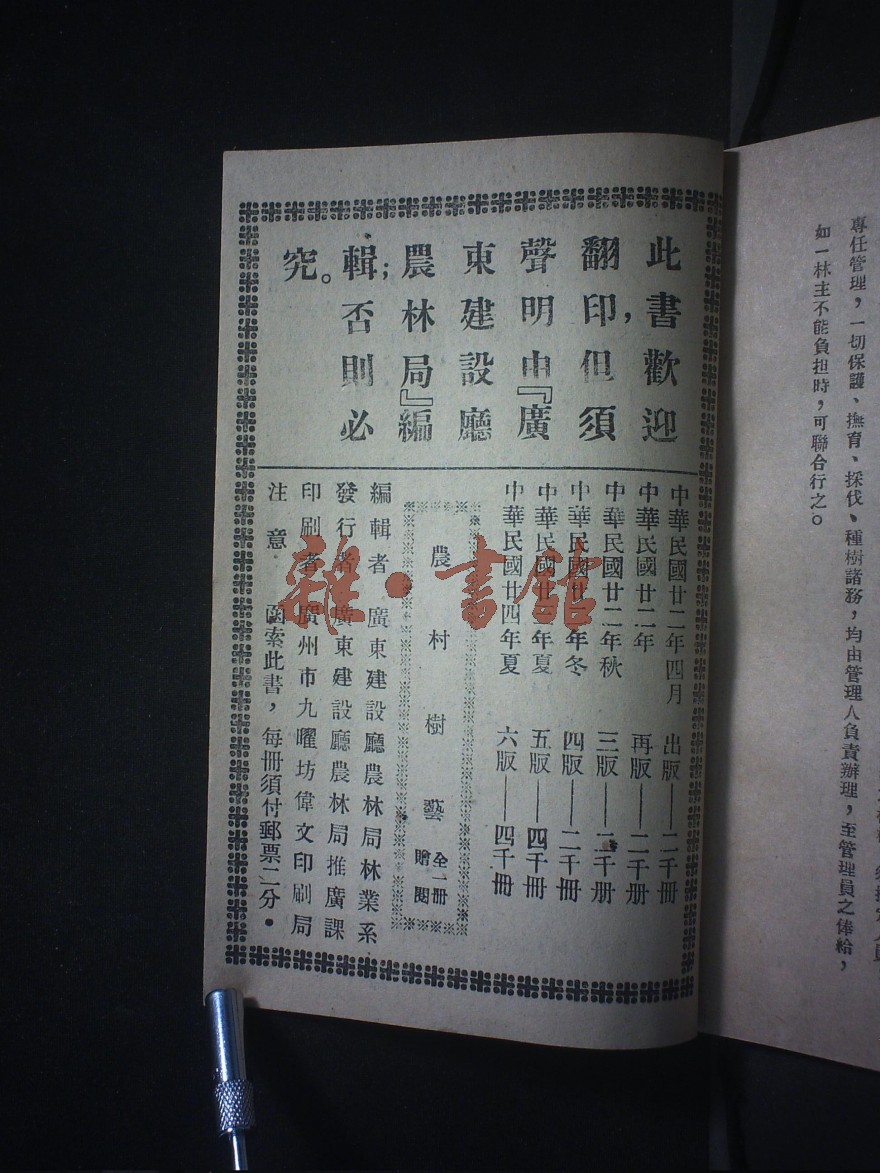 專任管理，一切保護、撫育、採伐、種樹諸務，均由管理人負責辦理，至管理員之俸給，
如一林主不能負担時，可聯合行之。
此書歡迎
翻印，但須
聲明由『廣
東建設廳
農林局』編
輯；否則必
究。
中華民國廿二年四月　出版——二千冊
中華民國廿二年　再版——二千册
中華民國廿二年秋　三版——二千册
中華民國廿二年冬　四版——二千冊
中華民國廿三年夏　五版——四千冊
中華民國廿四年夏　六版——四千冊
農村樹藝　全一冊　贈閱
編輯者　廣東建設廳農林局林業系
發行者　廣東建設廳農林局推廣課
印刷者　廣州市九曜坊偉文印刷局
注意　函索此書，每冊須付郵票二分．
雜·書館